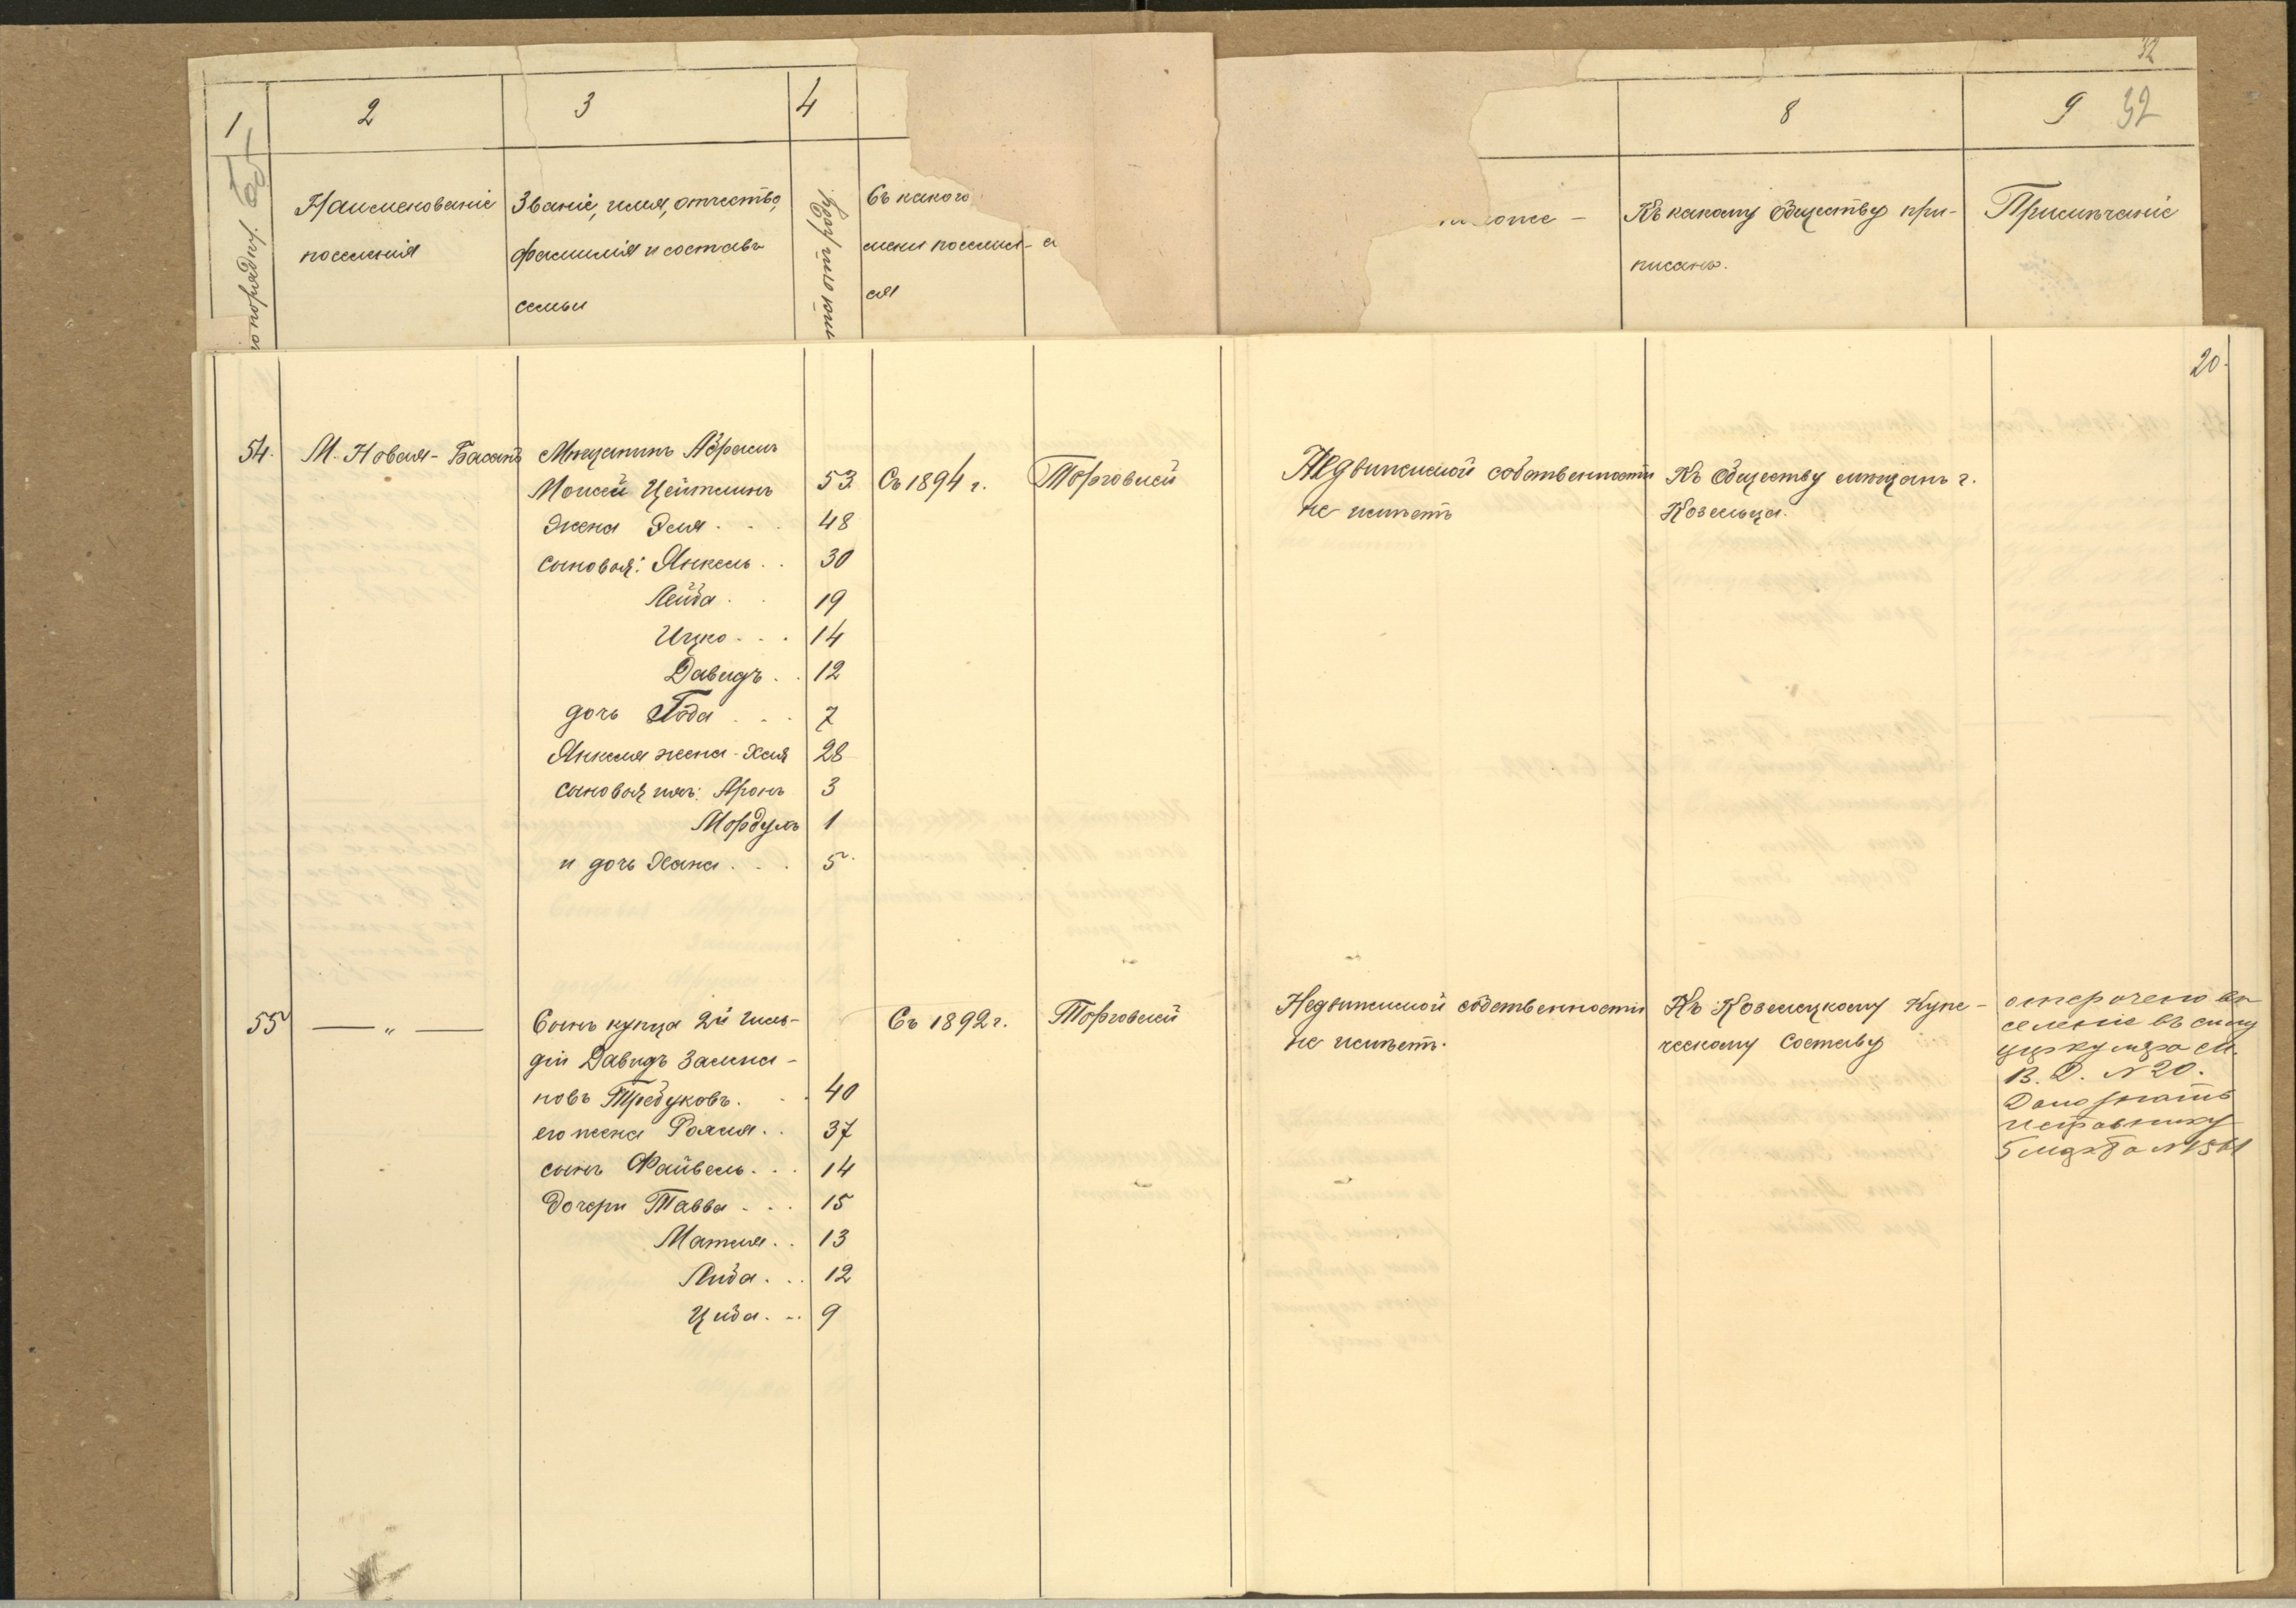 32
1
2
3
4
8
9 32
Наименованіе
поселенія
Званіе, имя, отчество,
фамилія и составъ
семьи
Съ какого
мени поселил-
ся
Къ какому обществу при-
писанъ.
Примѣчаніе
20.
54.
М. Новая-Басань
Мѣщанинъ Абрамъ
Мошей Цейтлинъ 53
жена Эля 48
сыновья: Янкель 30
Лейба 19
Ицко 14
Давидъ 12
дочь 7
Янкеля жена-Хая 28
сыновья ихъ: Аронъ 3
Мордухъ 1
и дочь Хана 5
Съ 1894 г.
Торговлей
Недвижимой собственности
не имѣетъ
Къ обществу мѣщанъ г.
Козельца.
55
— „ —
Сынъ купца 2й гиль-
діи Давидъ Залма-
новъ Требуковъ. 40
его жена 37
сынъ Файвель 14
Дочери Тавва 15
Матля 13
Либа 12
Цива 9
Съ 1892 г.
Торговлей
Недвижимой собственности
не имѣетъ.
Къ Козелецкому Купе-
ческому Составу
отсрочено вы
селеніе въ силу
циркуляра М.
В. Д. № 20.
Дано знать
исправнику
5 марта № 1561